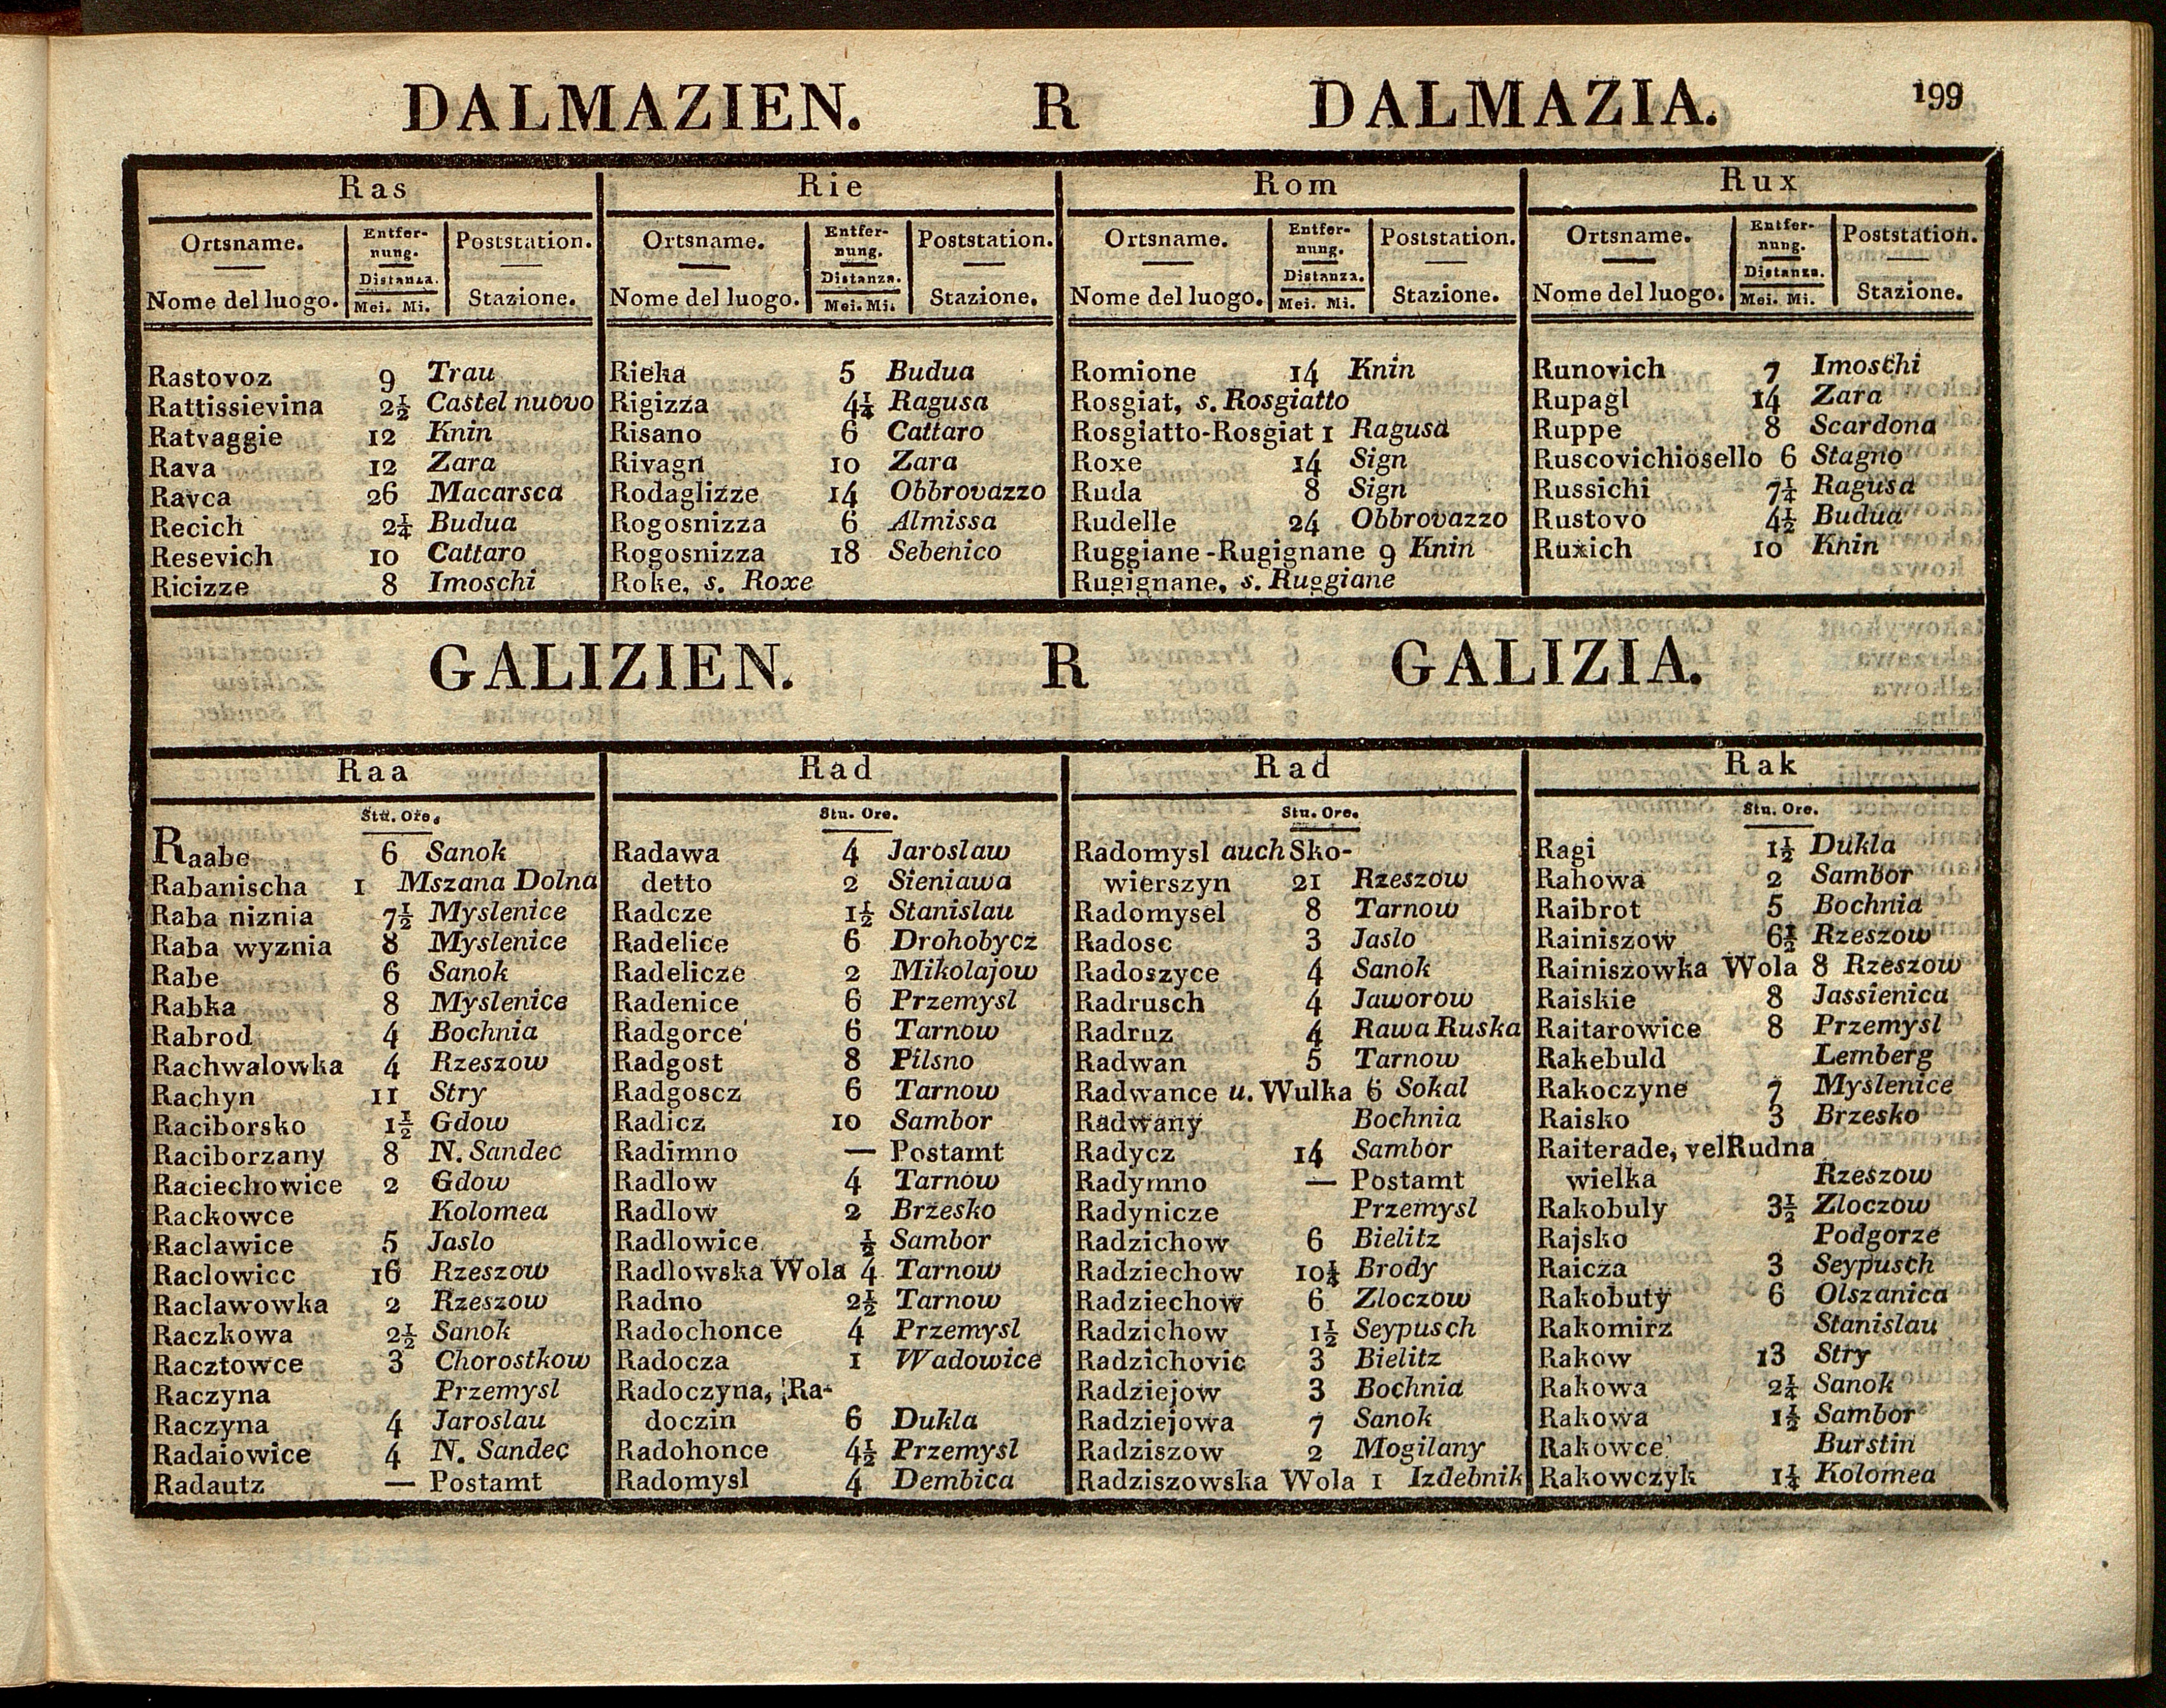 DALMAZIEN. R DALMAZIA. 199
Ras
Ortsname. Entfer- Poststation.
nung.
Distanza.
Nome del luogo. Mei. Mi. Stazione.
Rastovoz 9 Trau
Rattissievina 2½ Castel nuovo
Ratvaggie 12 Knin
Rava 12 Zara
Ravca 26 Macarsca
Recich 2¼ Budua
Resevich 10 Cattaro
Ricizze 8 Imoschi
Rie
Ortsname. Entfer- Poststation.
nung.
Distanza.
Nome del luogo. Mei. Mi. Stazione.
Rieka 5 Budua
Rigizza 4¼ Ragusa
Risano 6 Cattaro
Rivagn 10 Zara
Rodaglizze 14 Obbrovazzo
Rogosnizza 6 Almissa
Rogosnizza 18 Sebenico
Roke, s. Roxe
Rom
Ortsname. Entfer- Poststation.
nung.
Distanza.
Nome del luogo. Mei. Mi. Stazione.
Romione 14 Knin
Rosgiat, s. Rosgiatto
Rosgiatto-Rosgiat 1 Ragusa
Roxe 14 Sign
Ruda 8 Sign
Rudelle 24 Obbrovazzo
Ruggiane-Rugignane 9 Knin
Rugignane, s. Ruggiane
Rux
Ortsname. Entfer- Poststation.
nung.
Distanza.
Nome del luogo. Mei. Mi. Stazione.
Runovich 7 Imoschi
Rupagl 14 Zara
Ruppe 8 Scardona
Ruscovichiosello 6 Stagno
Russichi 7¼ Ragusa
Rustovo 4½ Budua
Ruxich 10 Knin
GALIZIEN. R GALIZIA.
Raa
Stu. Ore.
Raabe 6 Sanok
Rabanischa 1 Mszana Dolna
Raba niznia 7½ Myslenice
Raba wyznia 8 Myslenice
Rabe 6 Sanok
Rabka 8 Myslenice
Rabrod 4 Bochnia
Rachwalowka 4 Rzeszow
Rachyn 11 Stry
Raciborsko 1½ Gdow
Raciborzany 8 N. Sandec
Raciechowice 2 Gdow
Rackowce Kolomea
Raclawice 5 Jaslo
Raclowicc 16 Rzeszow
Raclawowka 2 Rzeszow
Raczkowa 2½ Sanok
Racztowce 3 Chorostkow
Raczyna Przemysl
Raczyna 4 Jaroslau
Radaiowice 4 N. Sandec
Radautz — Postamt
Rad
Stu. Ore.
Radawa 4 Jaroslaw
detto 2 Sieniawa
Radcze 1½ Stanislau
Radelice 6 Drohobycz
Radelicze 2 Mikolajow
Radenice 6 Przemysl
Radgorce 6 Tarnow
Radgost 8 Pilsno
Radgoscz 6 Tarnow
Radicz 10 Sambor
Radimno — Postamt
Radlow 4 Tarnow
Radlow 2 Brzesko
Radlowice ½ Sambor
Radlowska Wola 4 Tarnow
Radno 2½ Tarnow
Radochonce 4 Przemysl
Radocza 1 Wadowice
Radoczyna, Ra-
doczin 6 Dukla
Radohonce 4½ Przemysl
Radomysl 4 Dembica
Rad
Stu. Ore.
Radomysl auch Sko-
wierszyn 21 Rzeszow
Radomysel 8 Tarnow
Radosc 3 Jaslo
Radoszyce 4 Sanok
Radrusch 4 Jaworow
Radruz 4 Rawa Ruska
Radwan 5 Tarnow
Radwance u. Wulka 6 Sokal
Radwany Bochnia
Radycz 14 Sambor
Radymno — Postamt
Radynicze Przemysl
Radzichow 6 Bielitz
Radziechow 10¼ Brody
Radziechow 6 Zloczow
Radzichow 1½ Seypusch
Radzichovic 3 Bielitz
Radziejow 3 Bochnia
Radziejowa 7 Sanok
Radziszow 2 Mogilany
Radziszowska Wola 1 Izdebnik
Rak
Stu. Ore.
Ragi 1½ Dukla
Rahowa 2 Sambor
Raibrot 5 Bochnia
Rainiszow 6½ Rzeszow
Rainiszowka Wola 8 Rzeszow
Raiskie 8 Jassienica
Raitarowice 8 Przemysl
Rakebuld Lemberg
Rakoczyne 7 Myslenice
Raisko 3 Brzesko
Raiterade, vel Rudna
wielka Rzeszow
Rakobuly 3½ Zloczow
Rajsko Podgorze
Raicza 3 Seypusch
Rakobuty 6 Olszanica
Rakomirz Stanislau
Rakow 13 Stry
Rakowa 2¼ Sanok
Rakowa 1½ Sambor
Rakowce Burstin
Rakowczyk 1¼ Kolomea